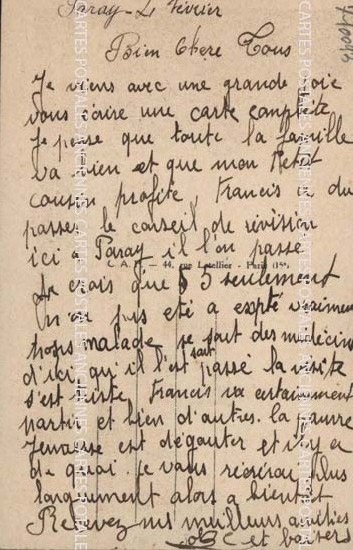 Paray - 4 Février
Bien Chère Tous
Je viens avec une grande joie
vous écrire une carte complète
Je pense que toute la famille
va bien et que mon Petit
cousin profite, Francis a du
passer le conseil de révision
ici a Paray il l'on passé
C. A. P. — 44, rue Letellier - Paris (15e)
Je crois que 5 seulement
n'on pas été a
trops malade, se sont des médecins
d'ici qui il l'est sait passé la visite
s'est triste, Francis va certainement
partir et bien d'autres. la pauvre
est et il y a
de quoi. je vous plus
longuement alors a bientôt
Recevez mes meilleurs amitiés
et baisers
CARTES POSTALES ANCIENNES